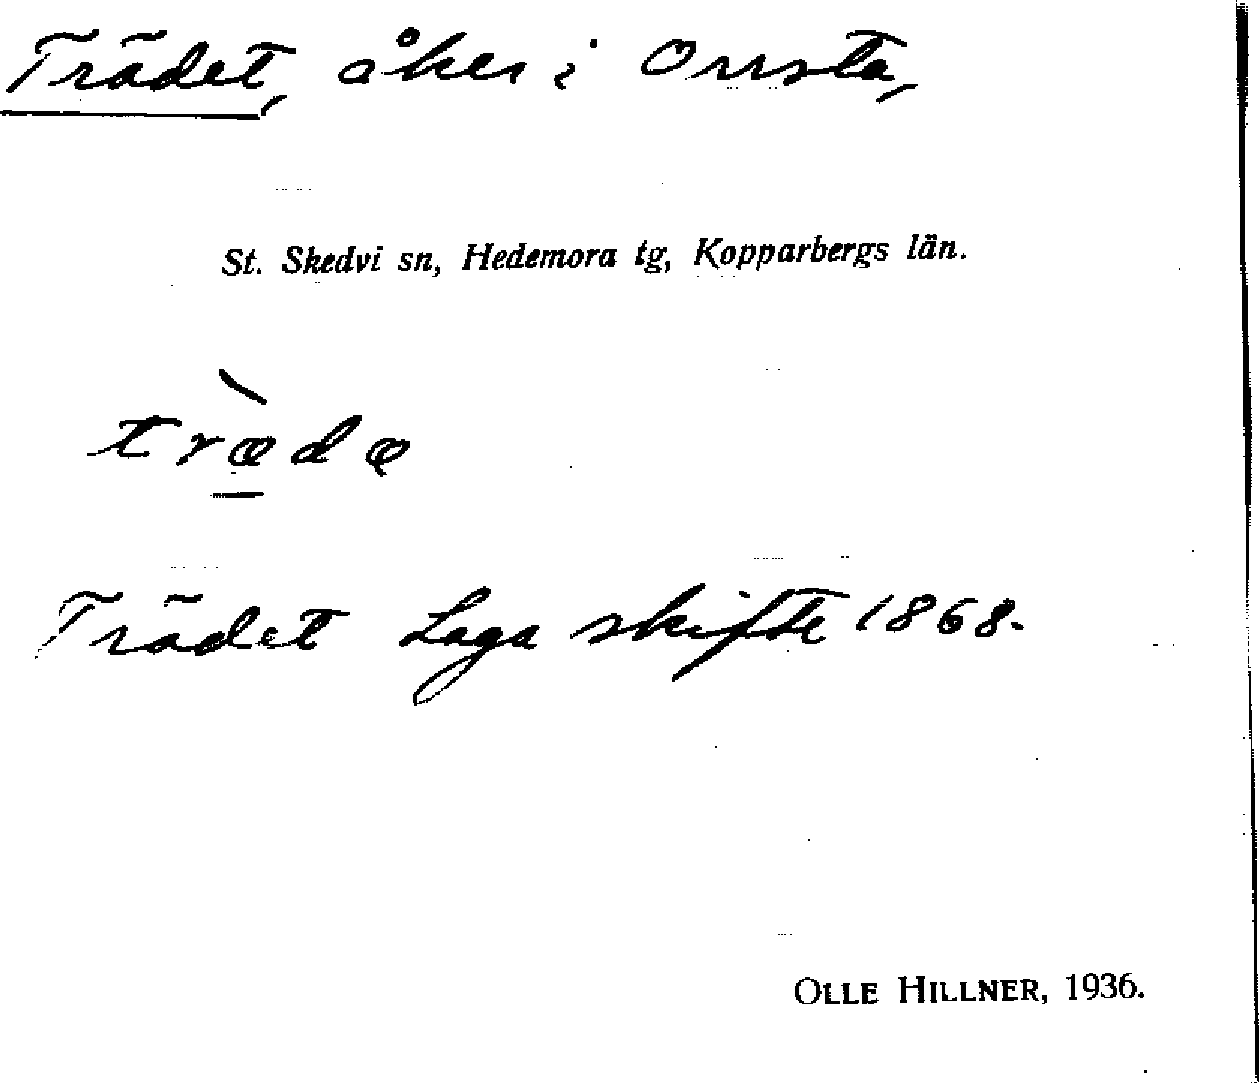 Trädet, åker i Onsta,
St. Skedvi sn, Hedemora tg, Kopparbergs län.
træ̀dæ
Trädet Laga skifte 1868.
OLLE HILLNER, 1936.